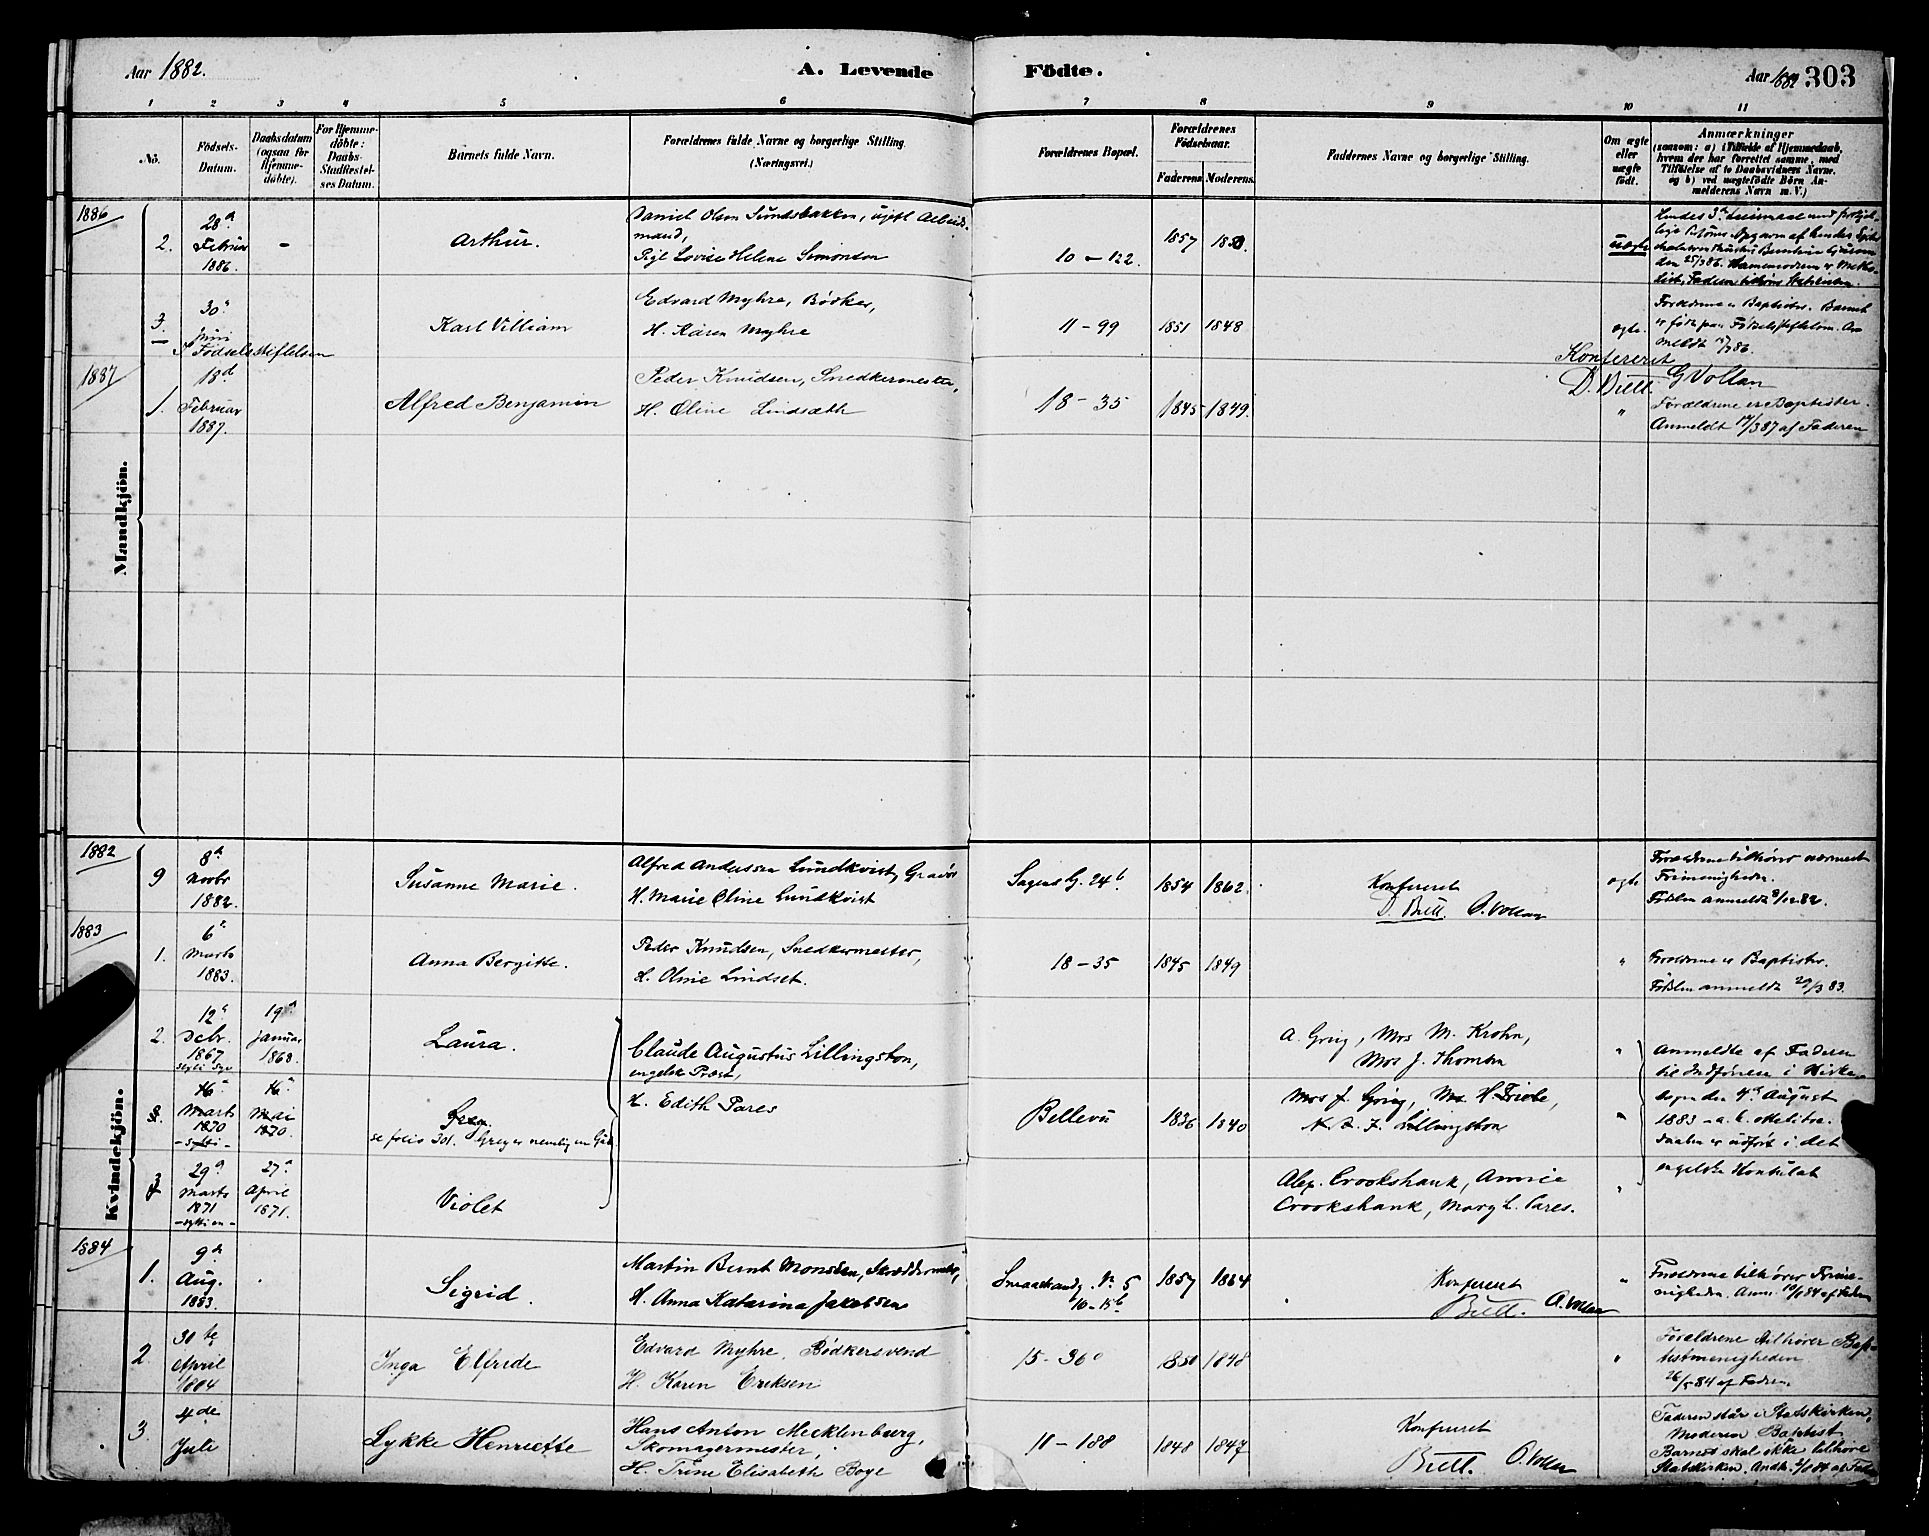 Aar 1882.
A. Levende
Födte.
Aar 1882 303
1 2 3 4 5 6 7 8 9 10 11
No.
Födsels-
Datum.
Daabsdatum
(ogsaa for
Hjemme-
döbte).
For Hjemme-
döbte:
Daabs-
Stadfestel-
ses Datum.
Barnets fulde Navn.
Forældrenes fulde Navne og borgerlige Stilling.
(Næringsvei.)
Forældrenes Bopæl.
Forældrenes
Födselsaar.
Faderens Moderens.
Faddernes Navne og borgerlige Stilling.
Om ægte
eller
uægte
födt.
Anmærkninger
(saasom: a) i Tilfælde af Hjemmedaab,
hvem der har forrettet samme, med
Tilföielse af to Daabsvidners Navne,
og b) ved uægtefödte Börn An-
melderens Navn m. V.)
Mandkjön.
1886
2.
28a
Februar
1886.
-
Arthur.
Daniel Olsen Sundsbakken, ugift Arbeids-
mand,
Pige Lovise Helene Simonsen
10 - 122.
1857 1850.
uægte
3.
30te
Juni
Fødselsstiftelsen
Karl Villiam
Edvard Myhre, Bødker,
H. Karen Myhre
11 - 99
1851 1848
ægte.
Forældrene er Baptister. Barnet
er født paa Fødselsstiftelsen. An
meldt 86.
Konfereret
D. Bull G Vollan
1887
1.
18d
Februar
1887.
Alfred Benjamin
Peder Knudsen, Snedkermester,
H. Oline Lindsæth
18 - 35
1845 1849.
"
Forældrene er Baptister.
Anmeldt 17/3 87 af Faderen
Kvindekjön.
1882
9
8a
Novbr
1882.
Susanne Marie.
Alfred Andersen Lundkvist, Gravør
H. Marie Oline Lundkvist
Sagens G. 24b.
1854 1862.
Konfereret
D. Bull. O. Vollan
ægte
Forældrene tilhører nærmest
Frimenigheden.
Fødslen anmeldt 8/12 82.
1883
1.
6te
Marts
1883.
Anna Bergitte.
Peder Knudsen, Snedkermester,
H. Oline Lindset.
18 - 35
1845 1849
"
Forældrene er Baptister.
Fødslen anmeldt 29/3 83.
2.
12te
Decbr.
1867
19a
Januar
1868.
Laura.
Claude Augustus Lillingston,
engelsk Præst,
H. Edith Pares
Bellevü
1836 1840
A. Grieg, Mrs M. Krohn,
Mrs J. Thomsen
"
Anmeldte af Faderen
til Indførelse i Kirke-
bogen den 4de August
1883
Daaben er udført i det
engelske Konsulat
16te
Marts
1870
16te
Mai
1870.
Grey.
se folio 301. Grey er nemlig en Gut.
Mrs J. Grieg,
Lillingston
"
3
29a
Marts
1871
- sytti en -
27a
April
1871.
Violet
Alex. Crookshank, Annie
Crookshank, Mary L. Pares.
"
1884
1.
9de
Aug.
1883.
Sigrid.
Martin Bernt Monsen, Skræddermester,
H. Anna Katarina Jakobsen
Smaastrandg. No 5
10 - 15b
1857 1864
Konfereret
Bull. O. Vollan
"
Forældrene tilhører Frime-
nigheden. Anm. 84 af Faderen
2.
30te
April
1884
Inga Elfride
Edvard Myhre, Bødkersvend
H. Karen Eriksen
15 - 36c
1850 1848
"
Forældrene tilhører Bap-
tistmenigheden
26/5 84 af Faderen
3.
4de
Juli
Lykke Henriette
Hans Anton Mecklenburg,
Skomagermester,
H. Trine Elisabeth Boge
11 - 188
1848 1847
Konfereret
Bull. O. Vollan
Faderen står i Statskirken,
Moderen Baptist
Barnet skal ikke tilhøre
Statskirken.